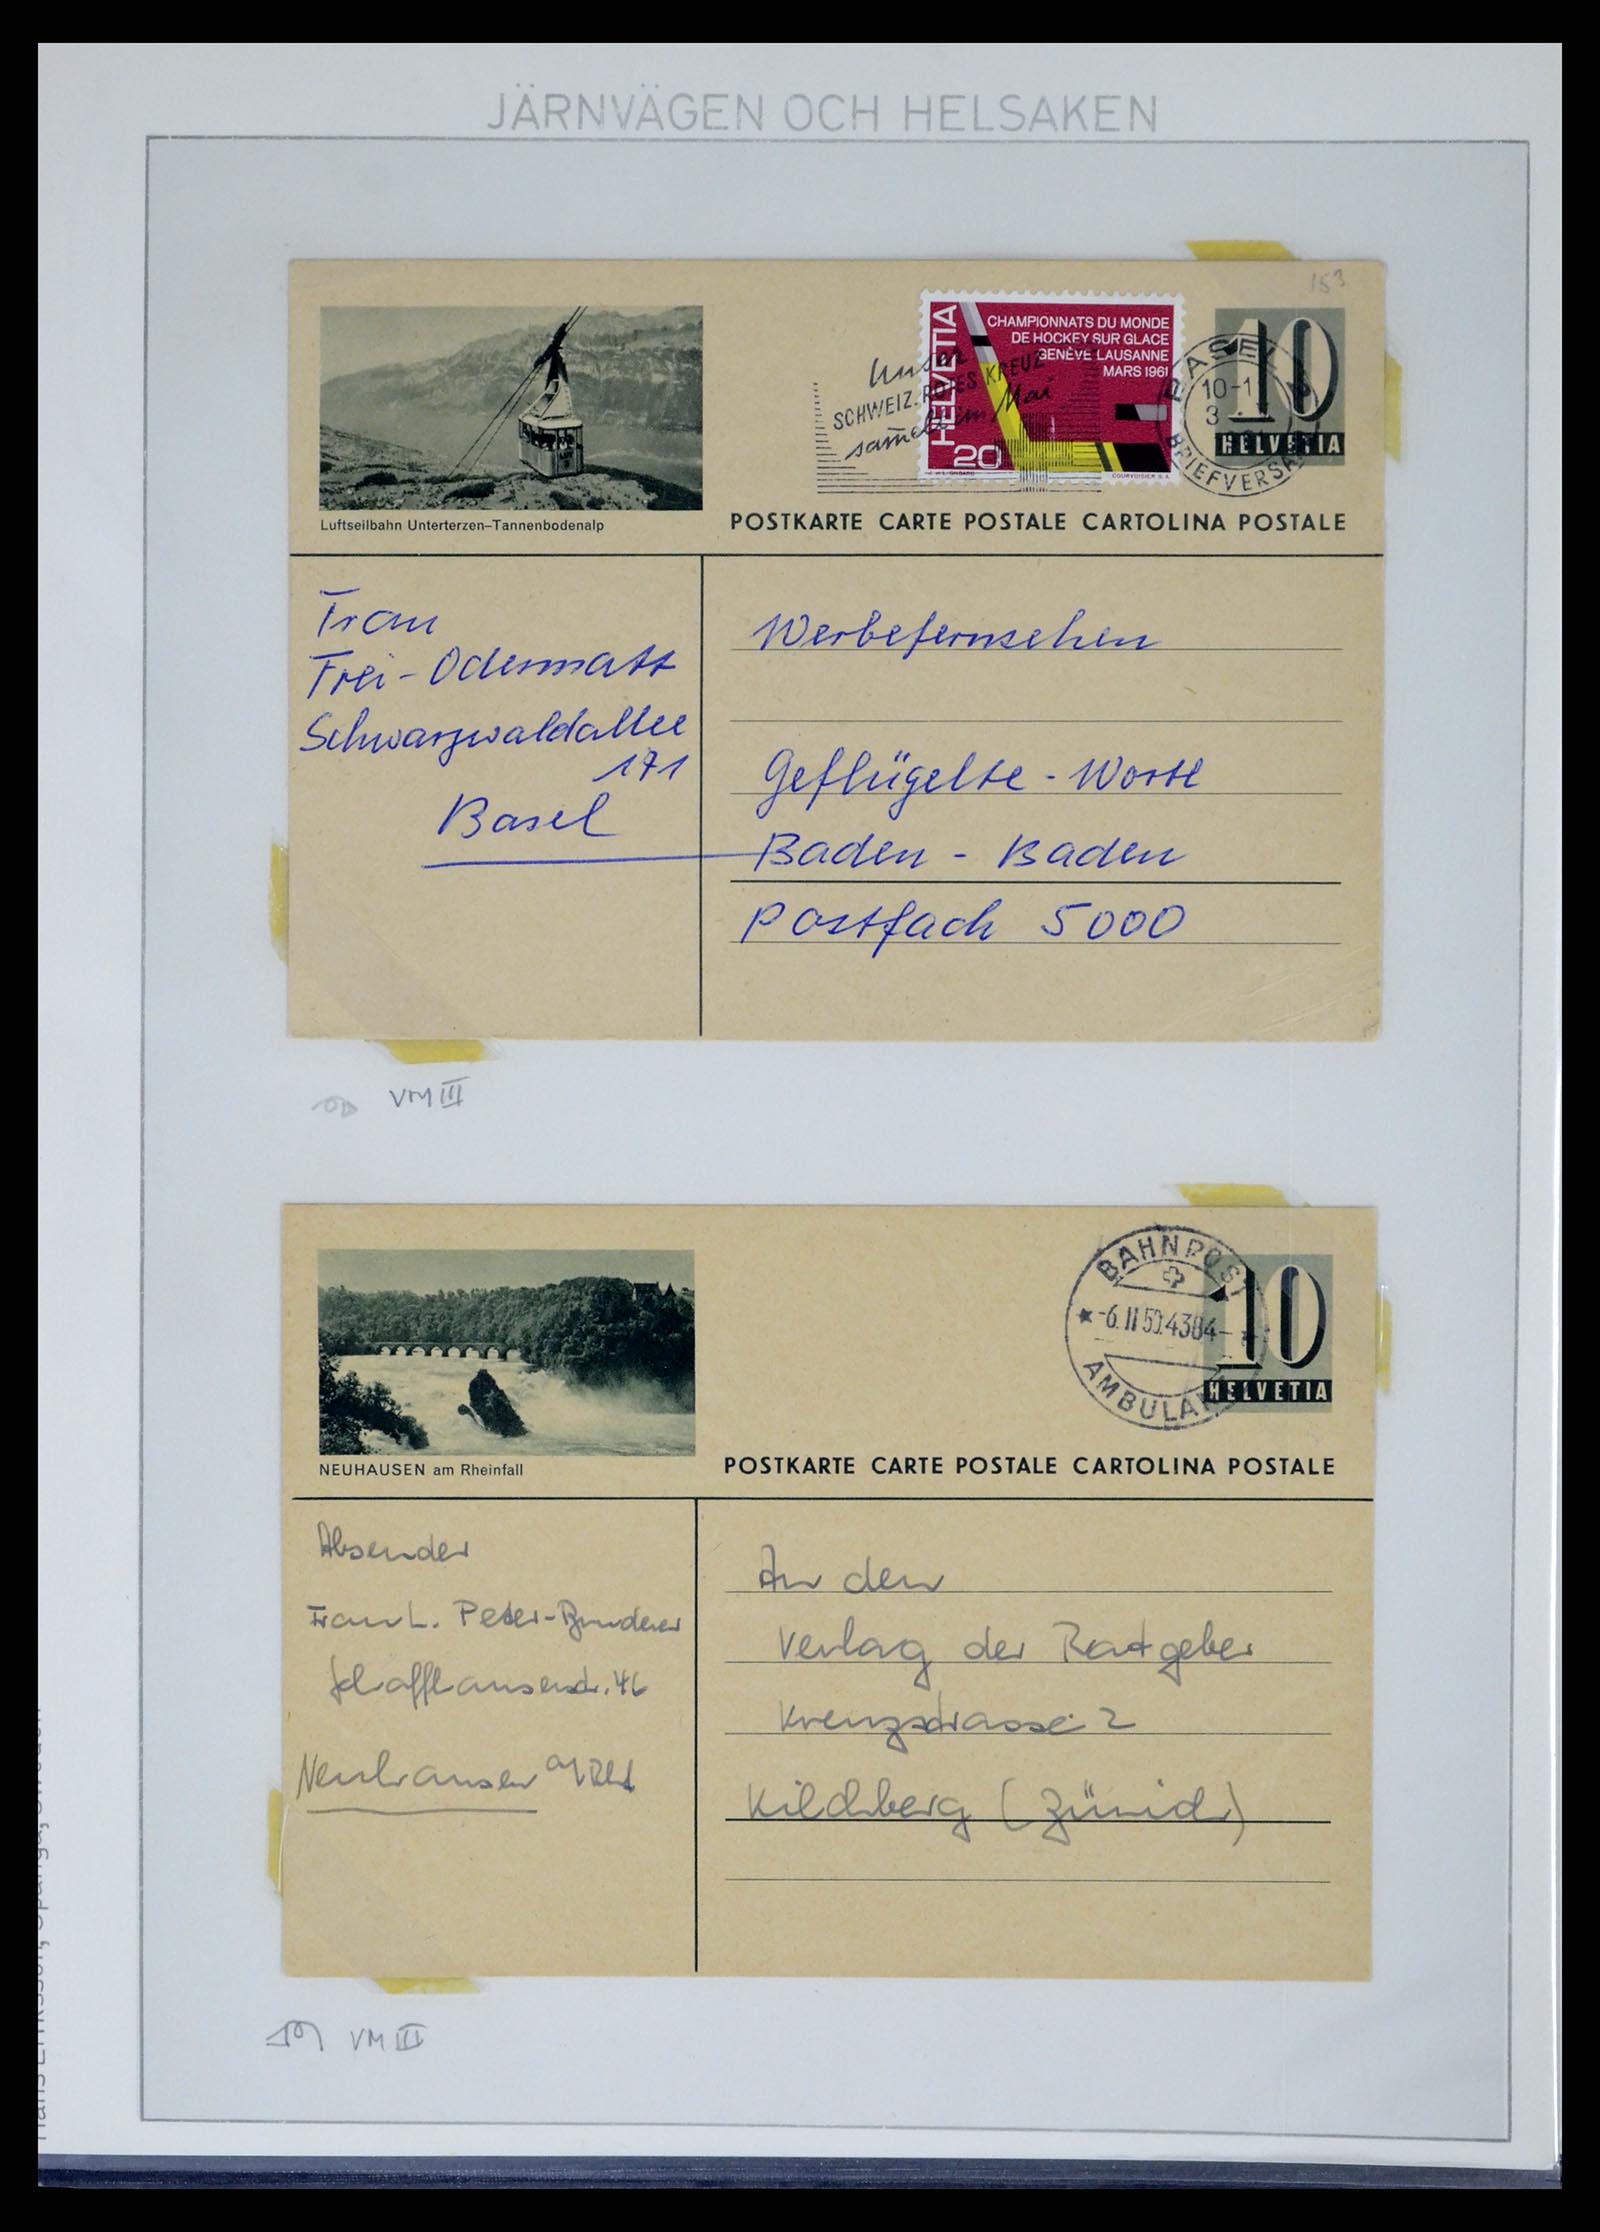 JÄRNVÄGEN OCH HELSAKEN
153
Luftseilbahn Unterterzen–Tannenbodenalp
Unser
SCHWEIZ. ROTES KREUZ
sammelt im Mai
HELVETIA
CHAMPIONNATS DU MONDE
DE HOCKEY SUR GLACE
GENÈVE LAUSANNE
MARS 1961
20
COURVOISIER S.A.
BASEL
10-1
3
BRIEFVERSAND
10
HELVETIA
POSTKARTE CARTE POSTALE CARTOLINA POSTALE
Frau
Frei-Odermatt
Schwarzwaldallee
171
Basel
Werbefernsehen
Geflügelte - Worte
Baden - Baden
Postfach 5000
VM III
NEUHAUSEN am Rheinfall
BAHNPOST
-6.II 59.4384-
AMBULANT
10
HELVETIA
POSTKARTE CARTE POSTALE CARTOLINA POSTALE
Absender
Frau L. Peter-
Schaffhauserstr. 46
Neuhausen a/Rhf
An den
Verlag der Ratgeber
Kreuzstrasse 2
Kilchberg (Zürich)
VM III
Hans Eriksson, Spånga, Sweden